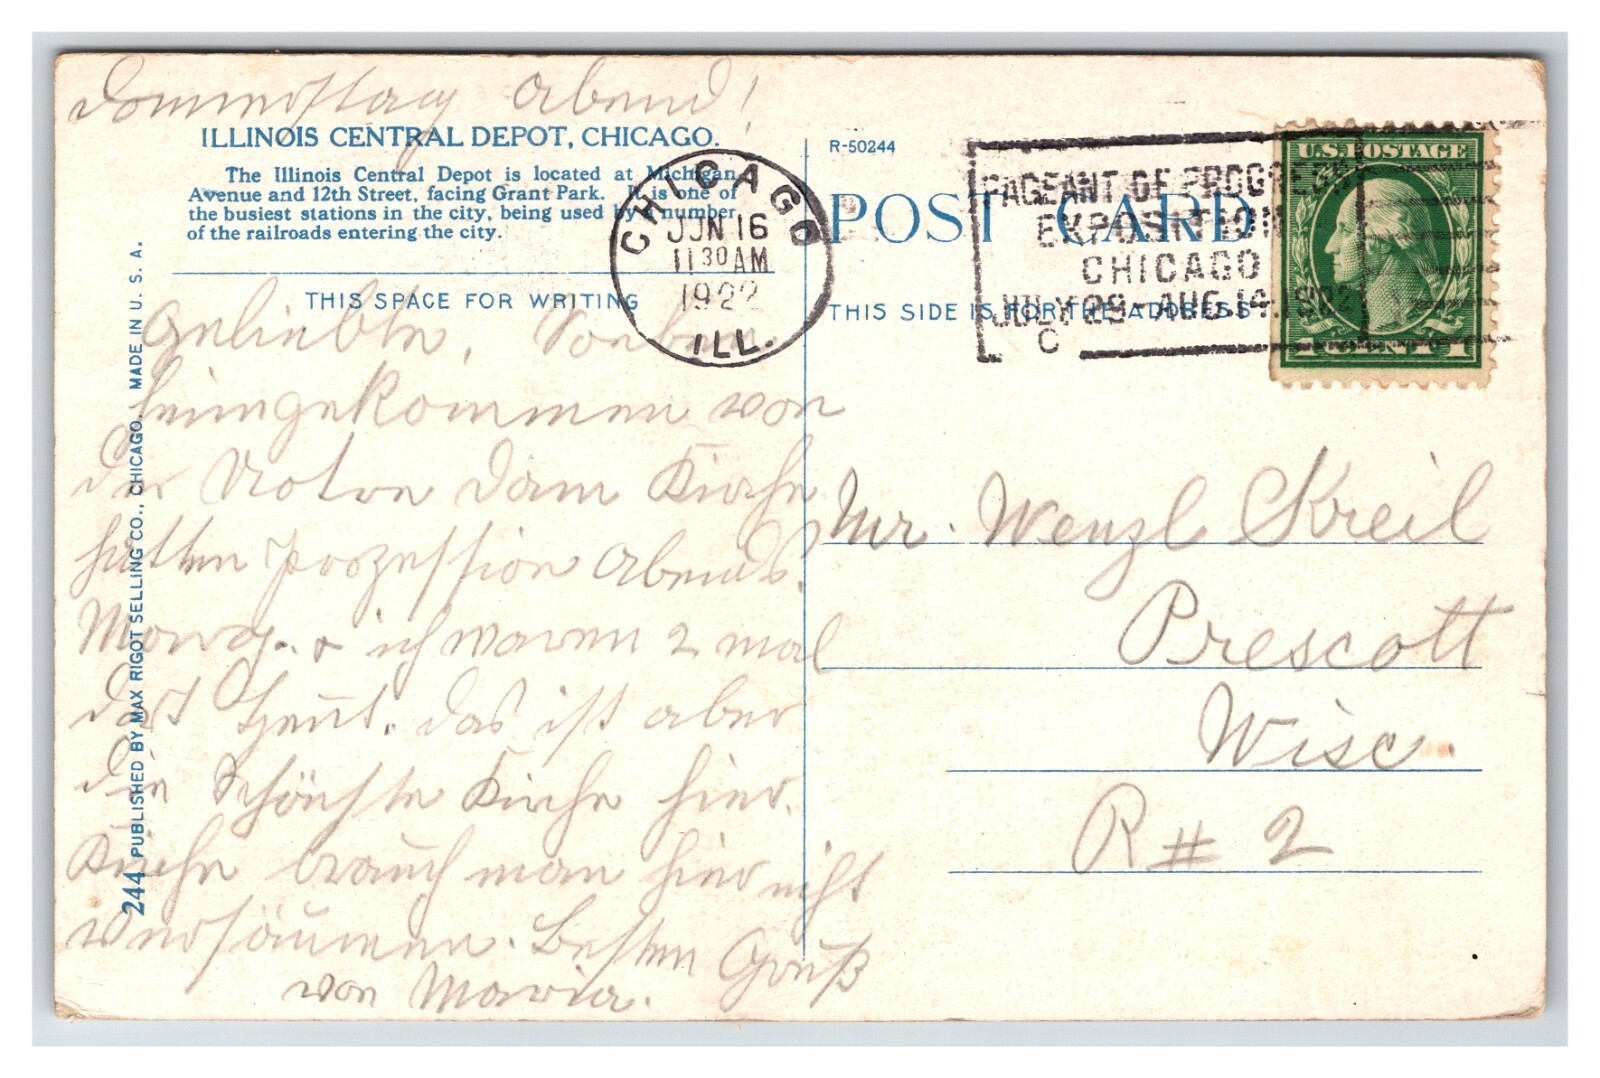 Donnerstag Abend!
ILLINOIS CENTRAL DEPOT, CHICAGO.
The Illinois Central Depot is located at Michigan
Avenue and 12th Street, facing Grant Park. It is one of
the busiest stations in the city, being used by a number
of the railroads entering the city.
THIS SPACE FOR WRITING
Geliebte, Soeben
heimgekommen von
der Notre Dam Kirche
hatten Prozession Abends.
& ich waren 2 mal
dort heut. das ist aber
die Schönste Kirche hier.
Kirche brauch man hier nicht
versäumen. Besten Gruß
von Maria.
244 PUBLISHED BY MAX RIGOT SELLING CO., CHICAGO. MADE IN U. S. A.
CHICAGO
JUN 16
11 30 AM
1922
ILL.
R-50244
POST CARD
THIS SIDE IS FOR THE ADDRESS
PAGEANT OF PROGRESS
EXPOSITION
CHICAGO
JULY 29-AUG.14.1922
C
U.S. POSTAGE
1 CENT 1
Mr. Wenzl Kreil
Prescott
Wisc.
R # 2